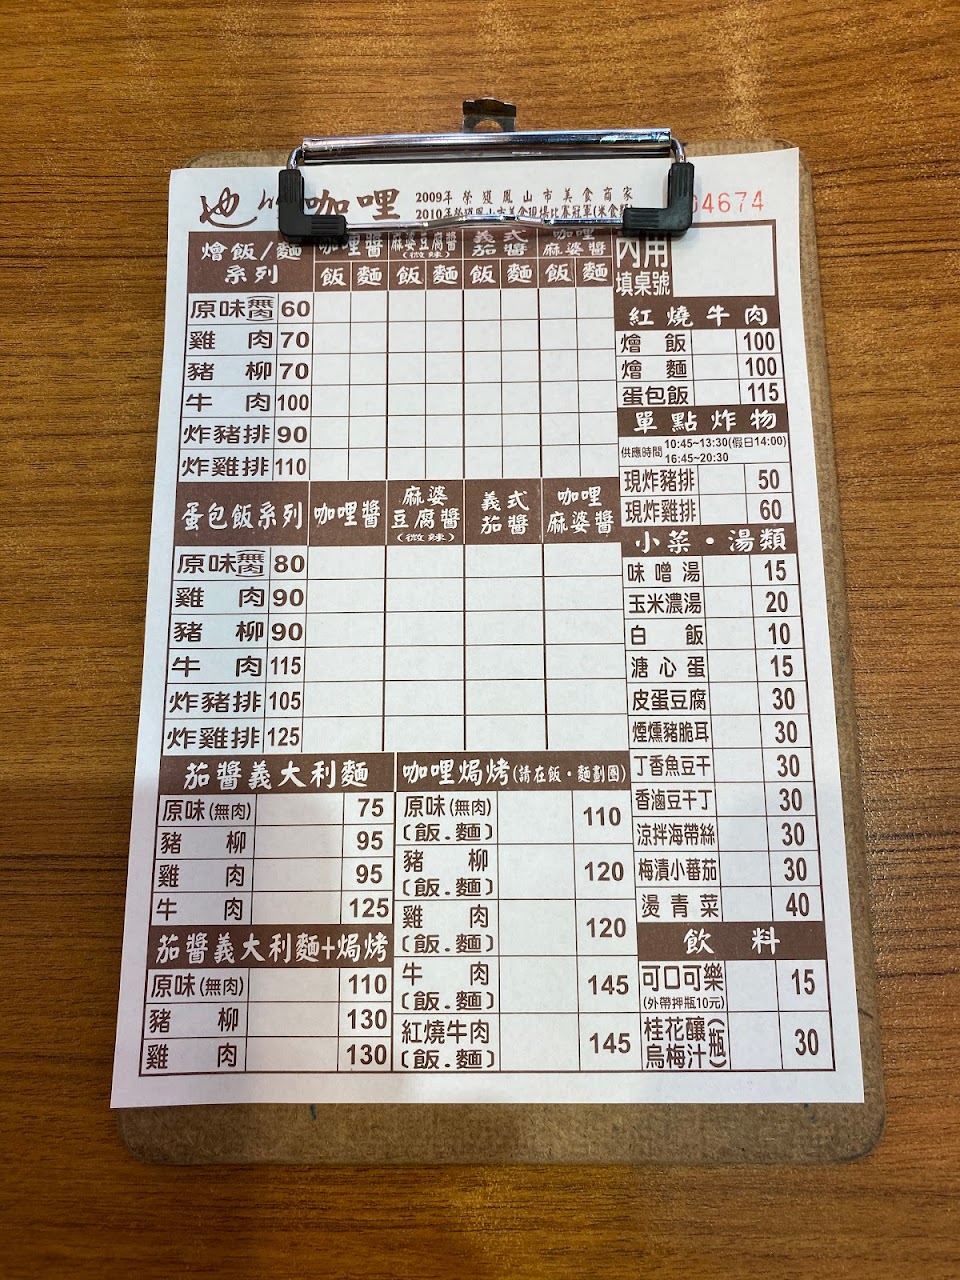 咖哩 2009年 榮獲鳳山市美食商家
2010年榮獲鳳山市美食現場比賽冠軍(米食
04674
燴飯/麵系列 咖哩醬 麻婆豆腐醬(微辣) 義式茄醬 咖哩麻婆醬
飯 麵 飯 麵 飯 麵 飯 麵
原味(無肉) 60
雞肉 70
豬柳 70
牛肉 100
炸豬排 90
炸雞排 110
蛋包飯系列 咖哩醬 麻婆豆腐醬(微辣) 義式茄醬 咖哩麻婆醬
原味(無肉) 80
雞肉 90
豬柳 90
牛肉 115
炸豬排 105
炸雞排 125
茄醬義大利麵
原味(無肉) 75
豬柳 95
雞肉 95
牛肉 125
茄醬義大利麵+焗烤
原味(無肉) 110
豬柳 130
雞肉 130
咖哩焗烤(請在飯・麵劃圈)
原味(無肉)(飯.麵) 110
豬柳(飯.麵) 120
雞肉(飯.麵) 120
牛肉(飯.麵) 145
紅燒牛肉(飯.麵) 145
內用
填桌號
紅燒牛肉
燴飯 100
燴麵 100
蛋包飯 115
單點炸物
供應時間 10:45~13:30(假日14:00)
16:45~20:30
現炸豬排 50
現炸雞排 60
小菜・湯類
味噌湯 15
玉米濃湯 20
白飯 10
溏心蛋 15
皮蛋豆腐 30
煙燻豬脆耳 30
丁香魚豆干 30
香滷豆干丁 30
涼拌海帶絲 30
梅漬小蕃茄 30
燙青菜 40
飲料
可口可樂 15
(外帶押瓶10元)
桂花釀烏梅汁(瓶) 30